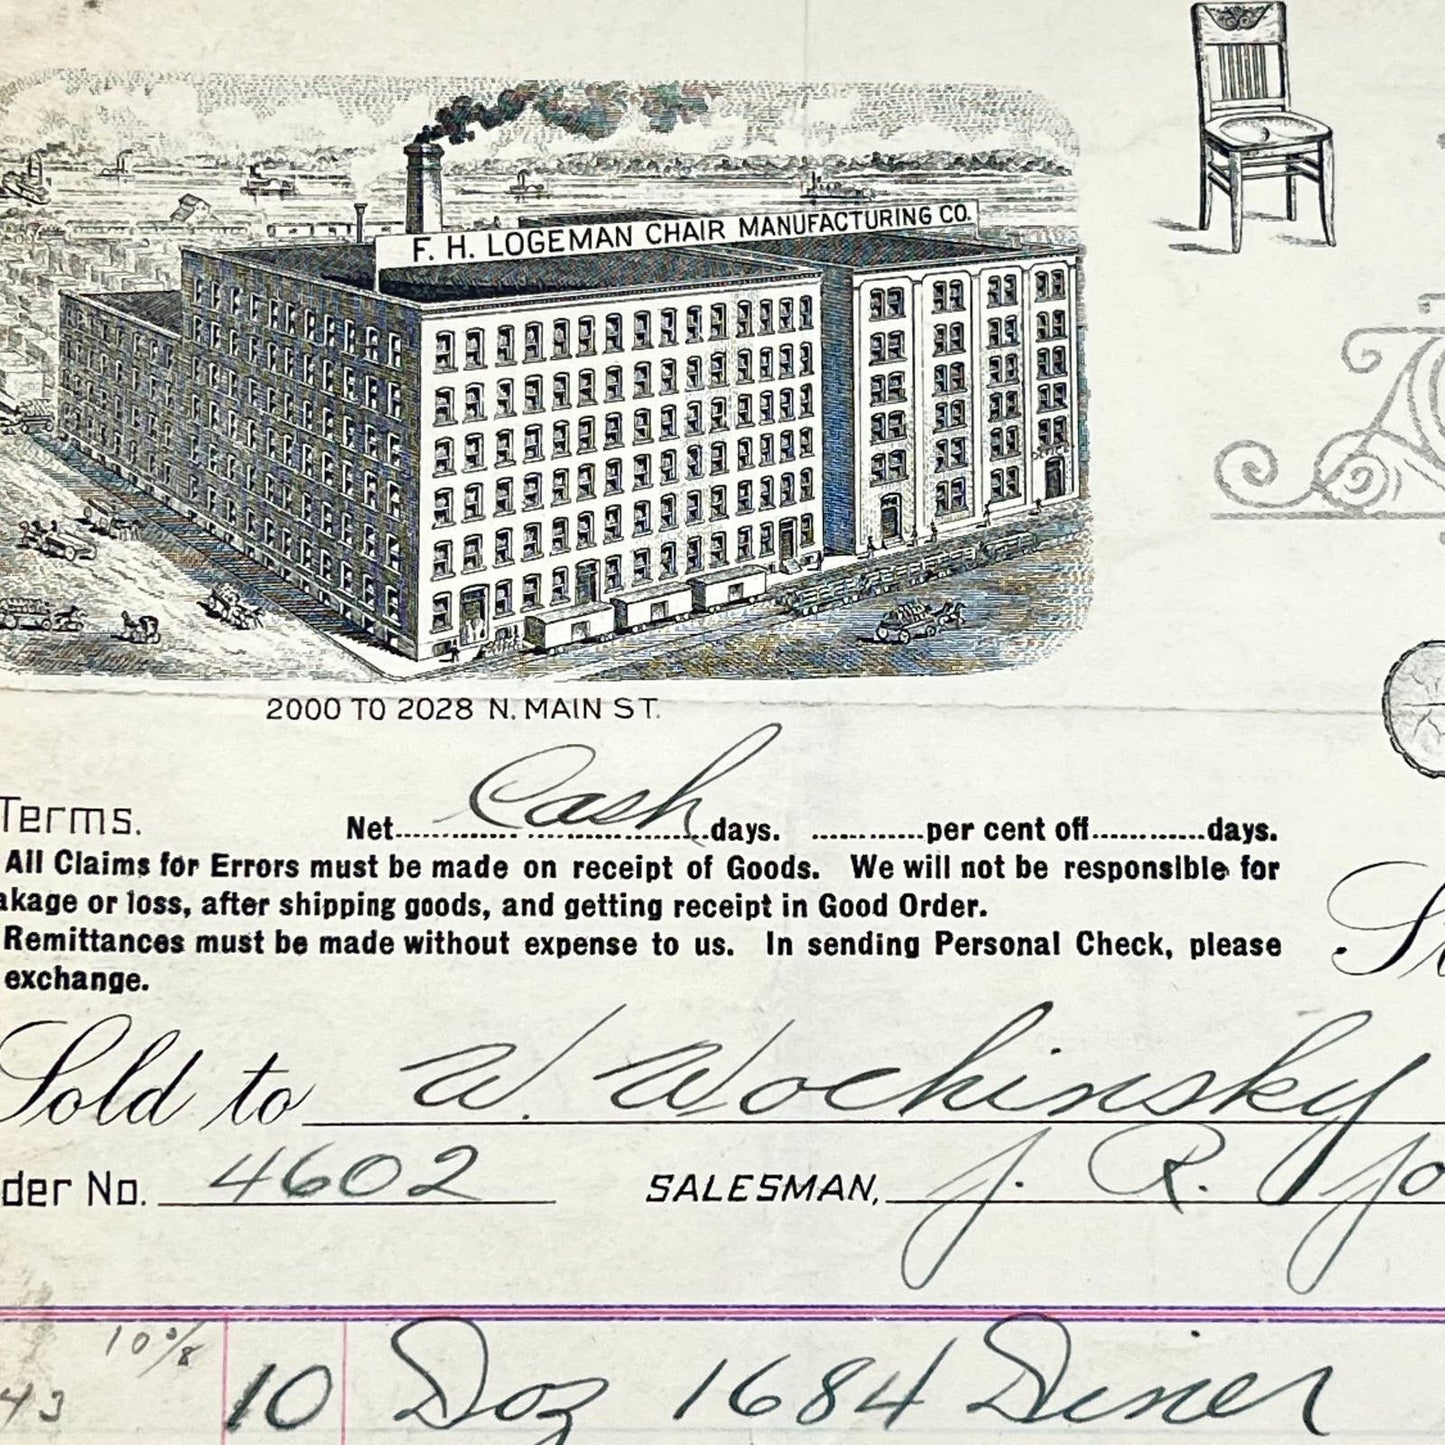 F. H. LOGEMAN CHAIR MANUFACTURING CO.
OFFICE
2000 TO 2028 N. MAIN ST.
Terms. Net Cash days. per cent off days.
All Claims for Errors must be made on receipt of Goods. We will not be responsible for
akage or loss, after shipping goods, and getting receipt in Good Order.
Remittances must be made without expense to us. In sending Personal Check, please
exchange.
Sold to W. Wochinsky
der No. 4602 SALESMAN, J. R. Jo
43 10 Doz 1684 Diner